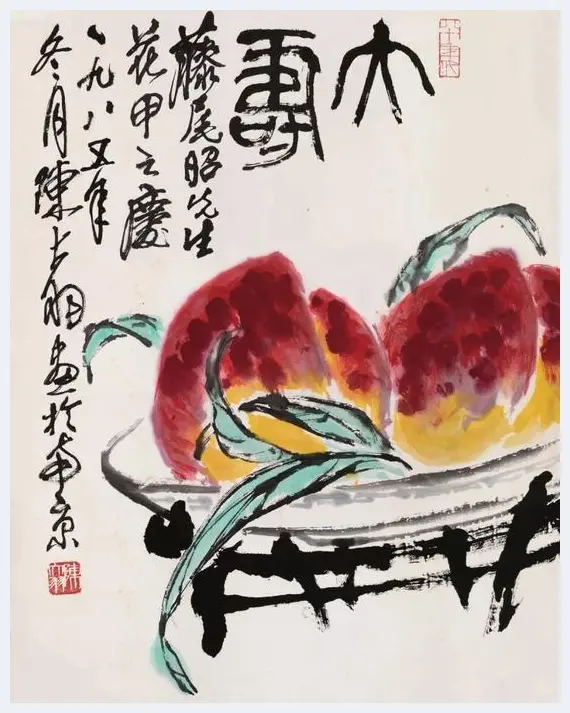 大壽
藤尾昭先生
花甲之慶
一九八五年
冬月陳大羽畫於南京